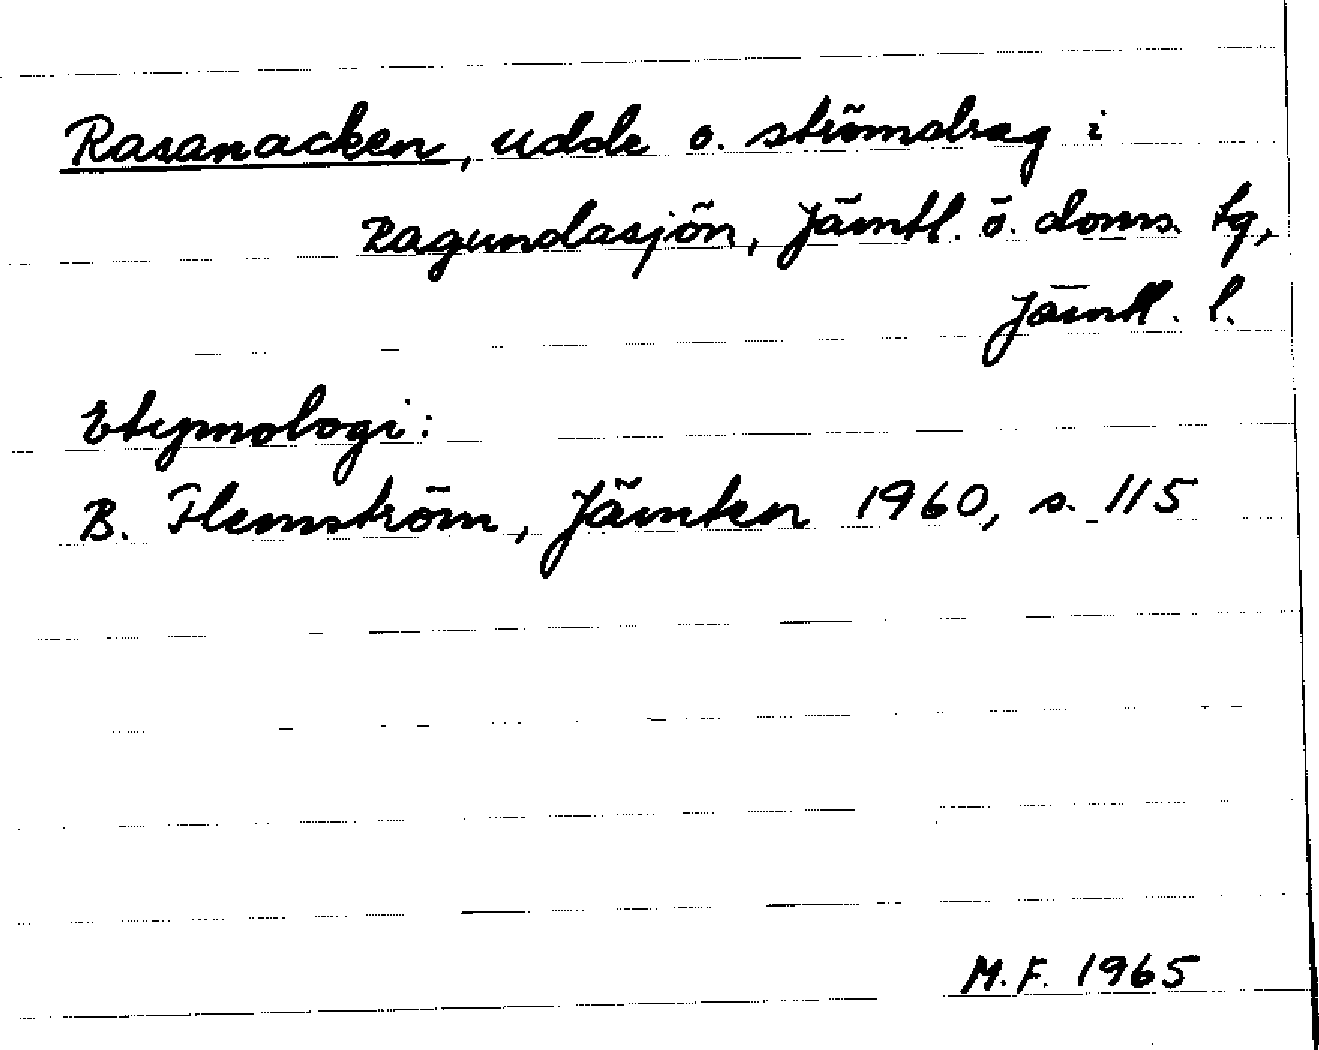 Rasanacken, udde o. strömdrag i
Ragundasjön, Jämtl. ö. doms. tg,
Jämtl. l.
Etymologi:
B. Flemström, Jämten 1960, s. 115
M.F. 1965